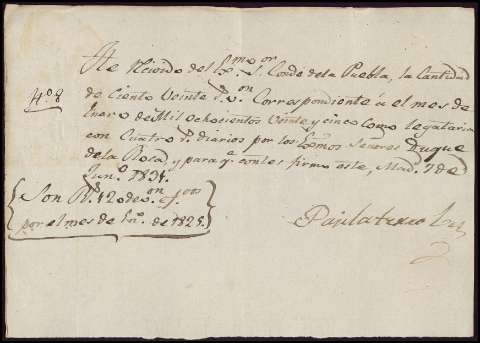 He recivido del Exmo Sor Conde dela Puebla, la Cantidad
Nº 8
de Ciento Veinte Rs. von Correspondiente á el mes de
Enero de Mil ochocientos Veinte y cinco como legataria
con Cuatro rs. diarios por los Exmos Señores Duque
dela Rosa y para qe conste firmo este, Mad. 7 de
Jun.º 1831.
Son Rs. 120 de von efvos
por el mes de En.º de 1825.
Paula